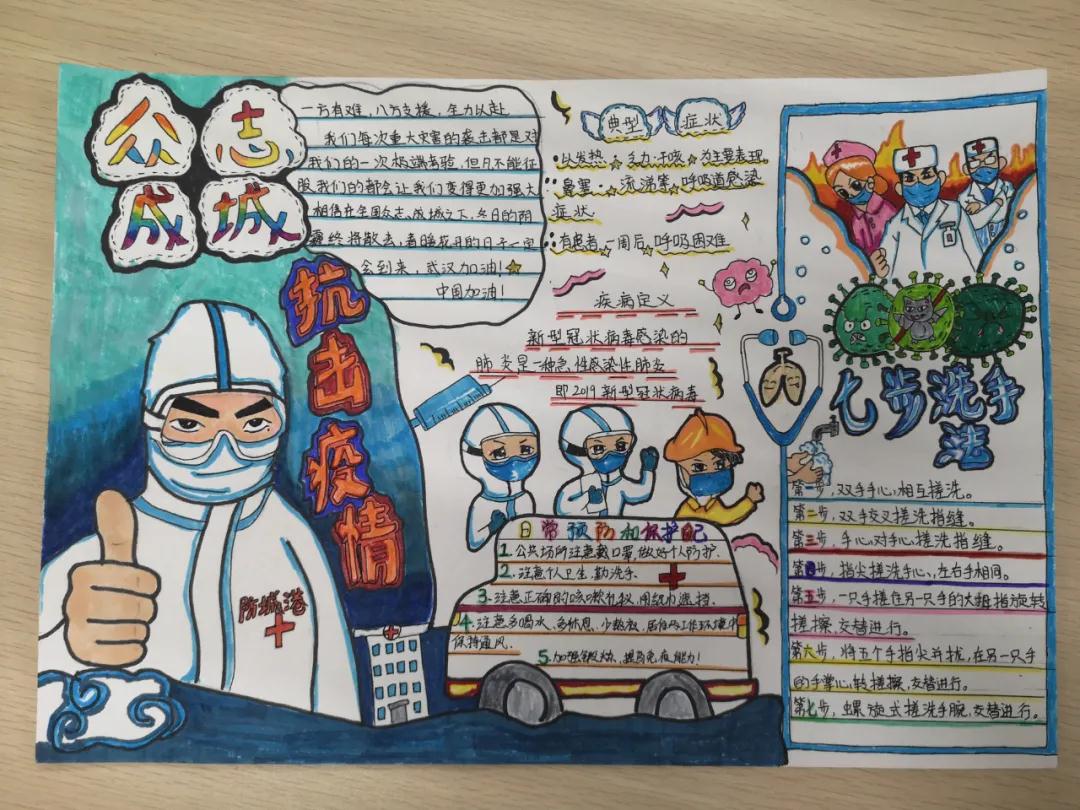 众志
成城
一方有难，八方支援，全力以赴
我们每次重大灾害的袭击都是对
我们的一次极端考验，但凡不能征
服我们的都会让我们变得更加强大
相信在全国众志成城之下，冬日的阴
霾终将散去，春暖花开的日子一定
会到来，武汉加油！
中国加油！
抗击疫情
防城港
典型 症状
以发热、乏力、干咳、为主要表现
鼻塞、流涕等、呼吸道感染
症状
有患者一周后，呼吸困难
疾病定义
新型冠状病毒感染的
肺炎是一种急性感染性肺炎
即2019新型冠状病毒
日常预防和保护
1.公共场所注意戴口罩做好个人防护.
2.注意个人卫生，勤洗手.
3.注意正确的咳嗽礼仪，用纸巾遮挡.
4.注意多喝水、多休息、少熬夜、居住
保持通风.
5.加强锻炼，提高免疫能力！
七步洗手
法
第一步，双手手心，相互搓洗。
第二步，双手交叉搓洗指缝。
第三步，手心对手心搓洗指缝。
第四步，指尖搓洗手心，左右手相同。
第五步，一只手搓在另一只手的大拇指旋转
搓擦，交替进行。
第六步，将五个手指尖并拢，在另一只手
的手掌心转搓擦，交替进行。
第七步，螺旋式搓洗手腕，交替进行。